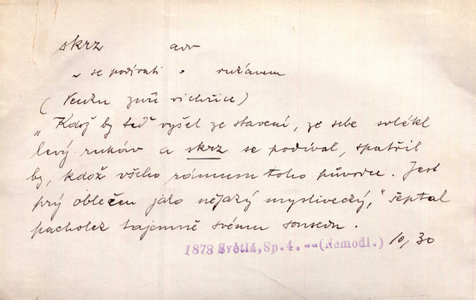 skrz adv
„ se podívati „ rukávem
(Venku zuří vichřice)
„Kdož by teď vyšel ze stavení, ze sebe svlékl
levý rukáv a skrz se podíval, spatřil
by, kdož všeho rámusu toho původcem. Jest
prý oblečen jako nějaký myslivecký," šeptal
pacholek tajemně svému sousedu.
1878 Světlá, Sp. 4. -- (Nemodl.) 10, 30